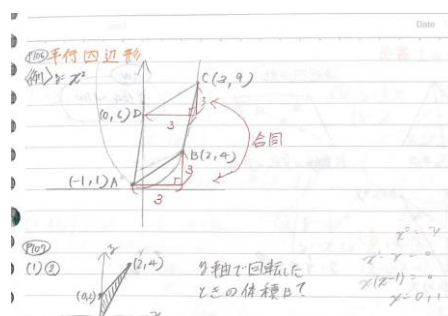 Date
P106 平行四辺形
<例> y = x²
C(3, 9)
(0, 6) D
3
3
合同
B(2, 4)
3
(-1, 1) A
3
P107
(1) ②
y
(2, 4)
(0, 2)
y軸で回転した
ときの体積は?
x² = x
x² - x = 0
x(x-1) = 0
x = 0, 1
x